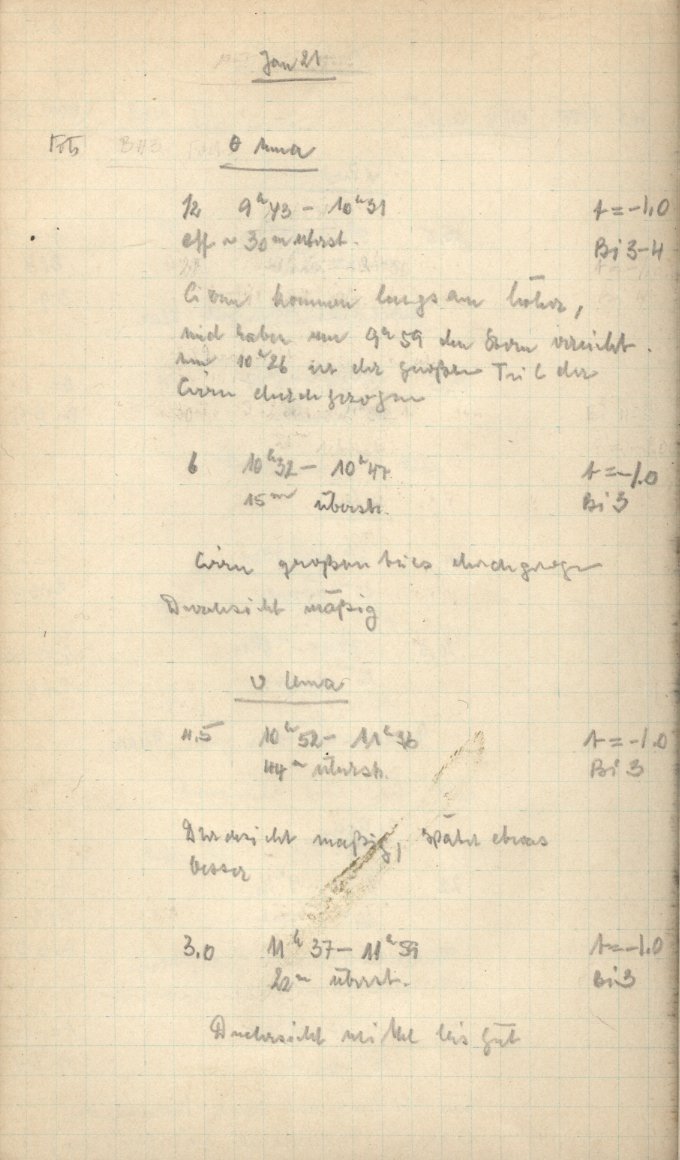 Jan 21
θ Uma
12 9ʰ43 – 10ʰ31 t = -1.0
eff ~ 30ᵐ überst. Bi 3-4
Cirren kommen langsam höher,
und haben um 9ʰ59 den Stern erreicht.
um 10ʰ26 ist der größte Teil der
Cirren durchgezogen
6 10ʰ32 – 10ʰ47 t = -1.0
15ᵐ überst. Bi 3
Cirren großenteils durchgezogen
Durchsicht mäßig
υ Uma
4.5 10ʰ52 – 11ʰ36 t = -1.0
44ᵐ überst. Bi 3
Durchsicht mäßig, später etwas
besser
3.0 11ʰ37 – 11ʰ59 t = -1.0
22ᵐ überst. Bi 3
Durchsicht mittel bis gut